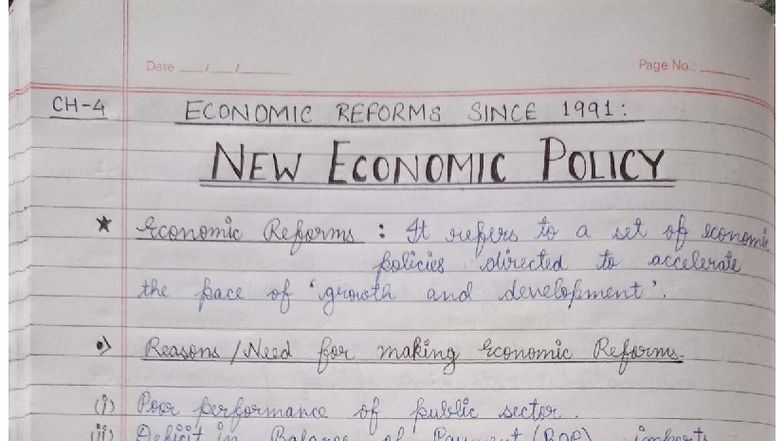 Date __/__/____
Page No.: ____
CH-4
ECONOMIC REFORMS SINCE 1991:
NEW ECONOMIC POLICY
★ Economic Reforms : It refers to a set of economic
policies directed to accelerate
the pace of 'growth and development'.
•) Reasons/Need for making Economic Reforms.
(i) Poor performance of public sector.
(ii) Deficit in Balance of Payment (BOP) import